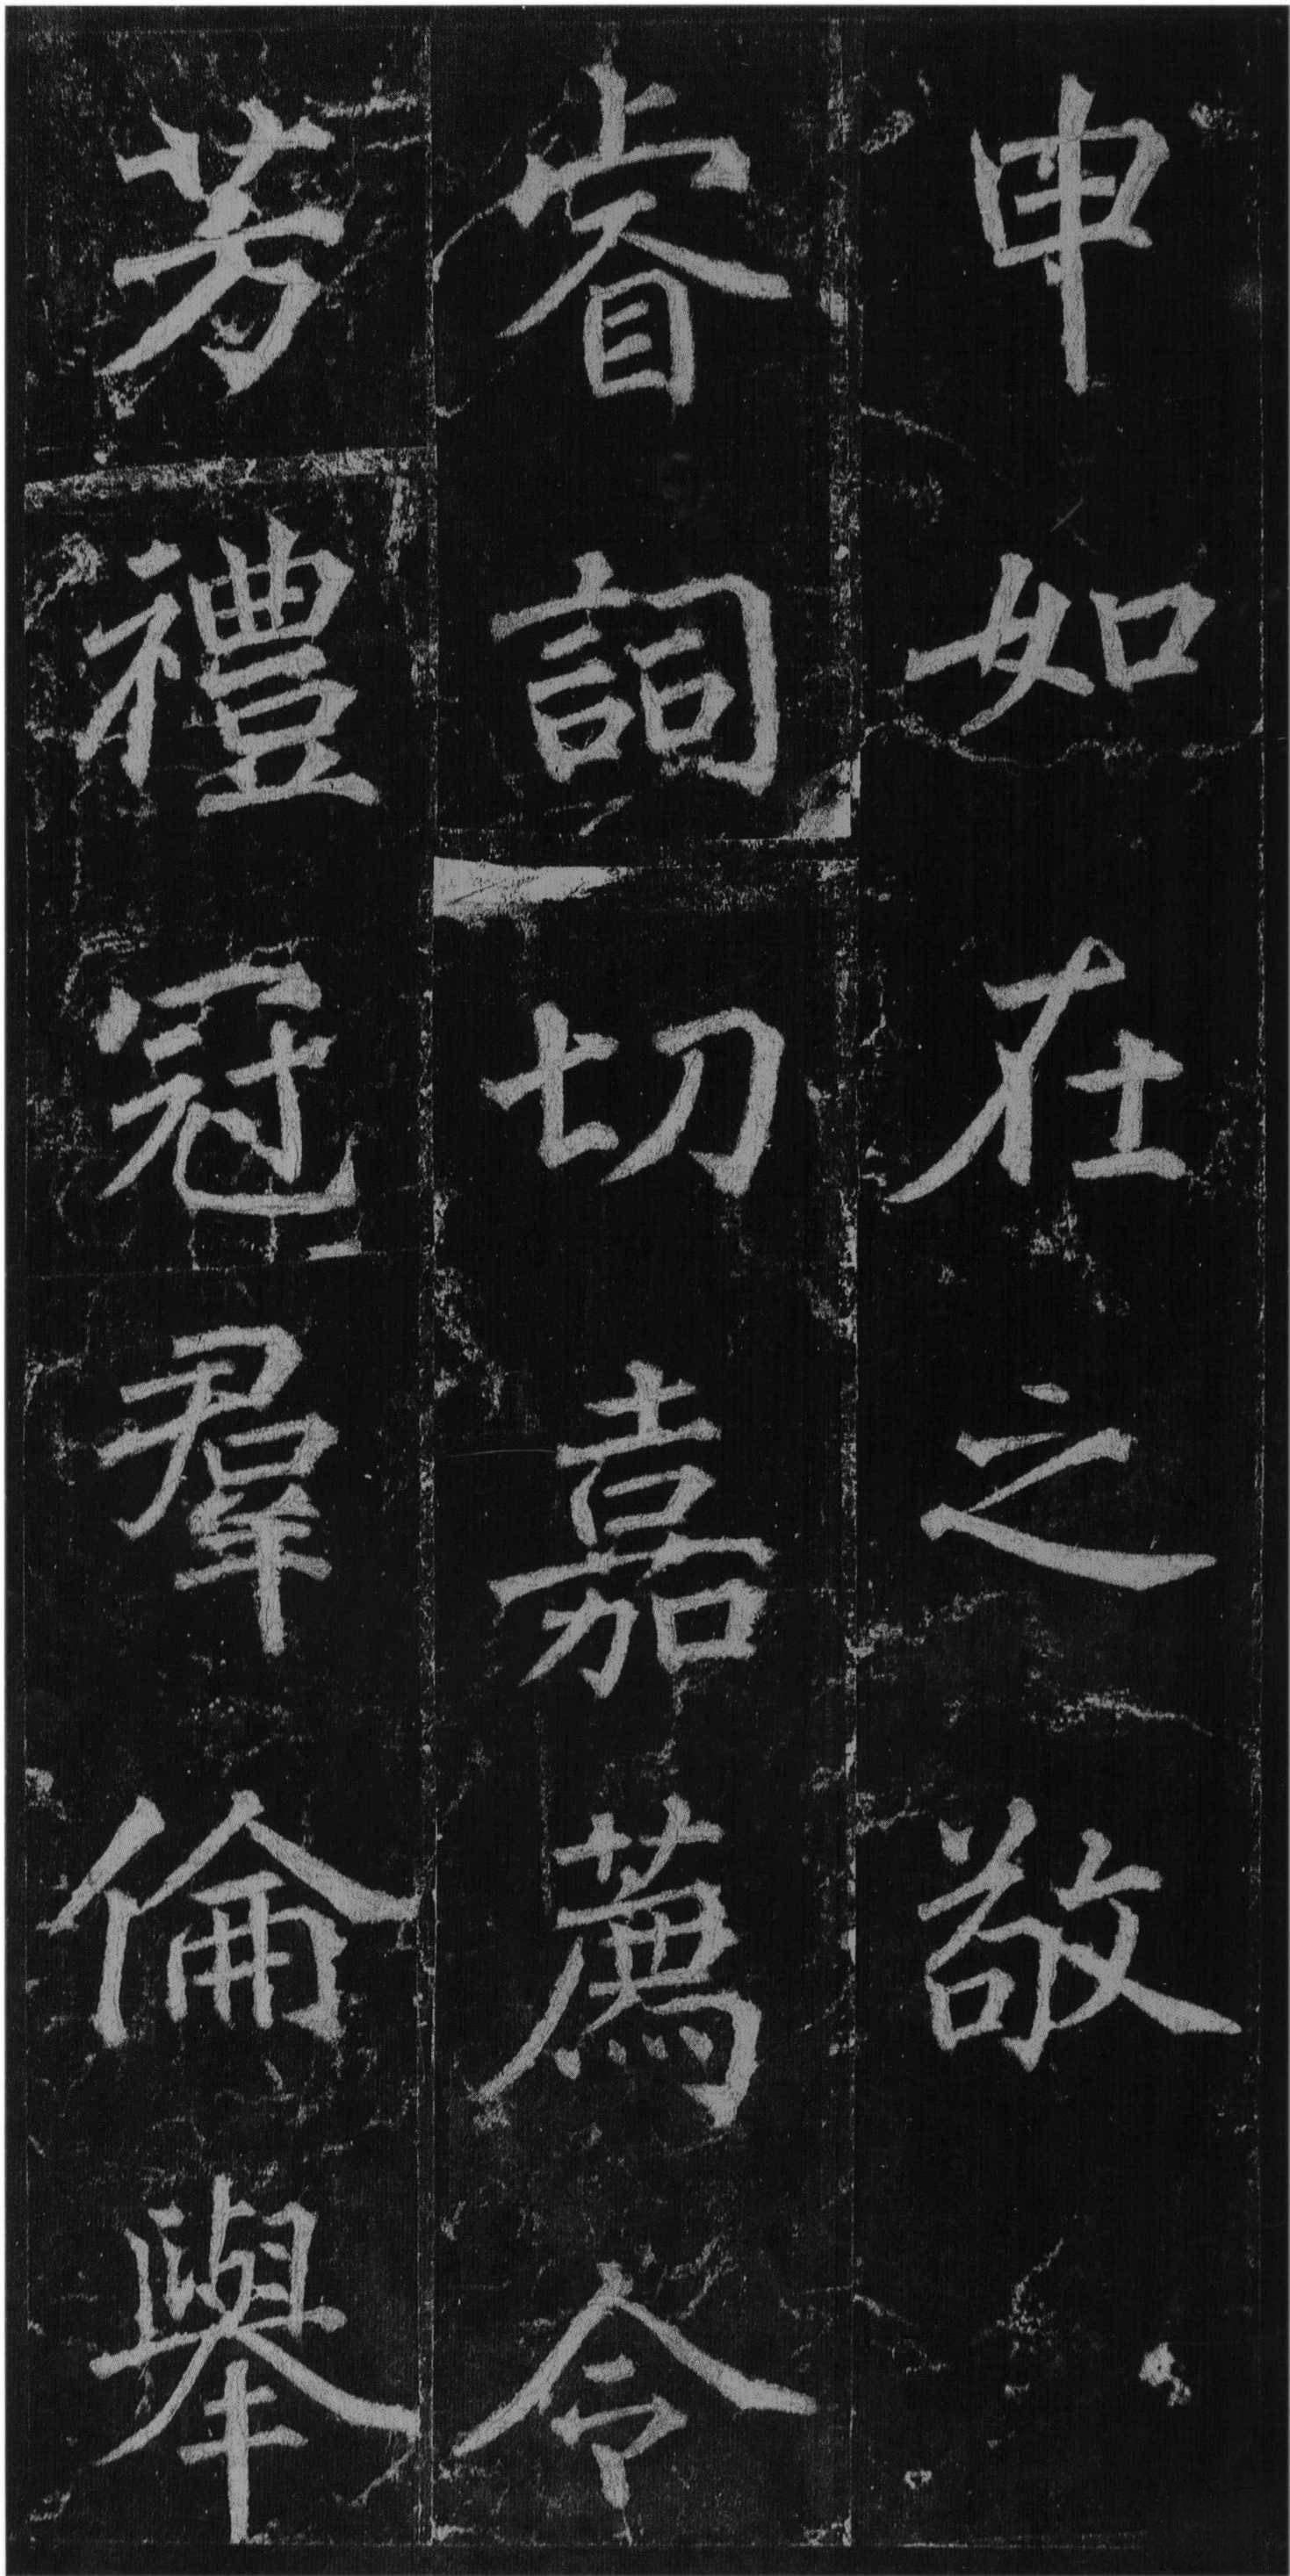 申如在之敬
睿詞切嘉薦令
芳禮冠羣倫舉